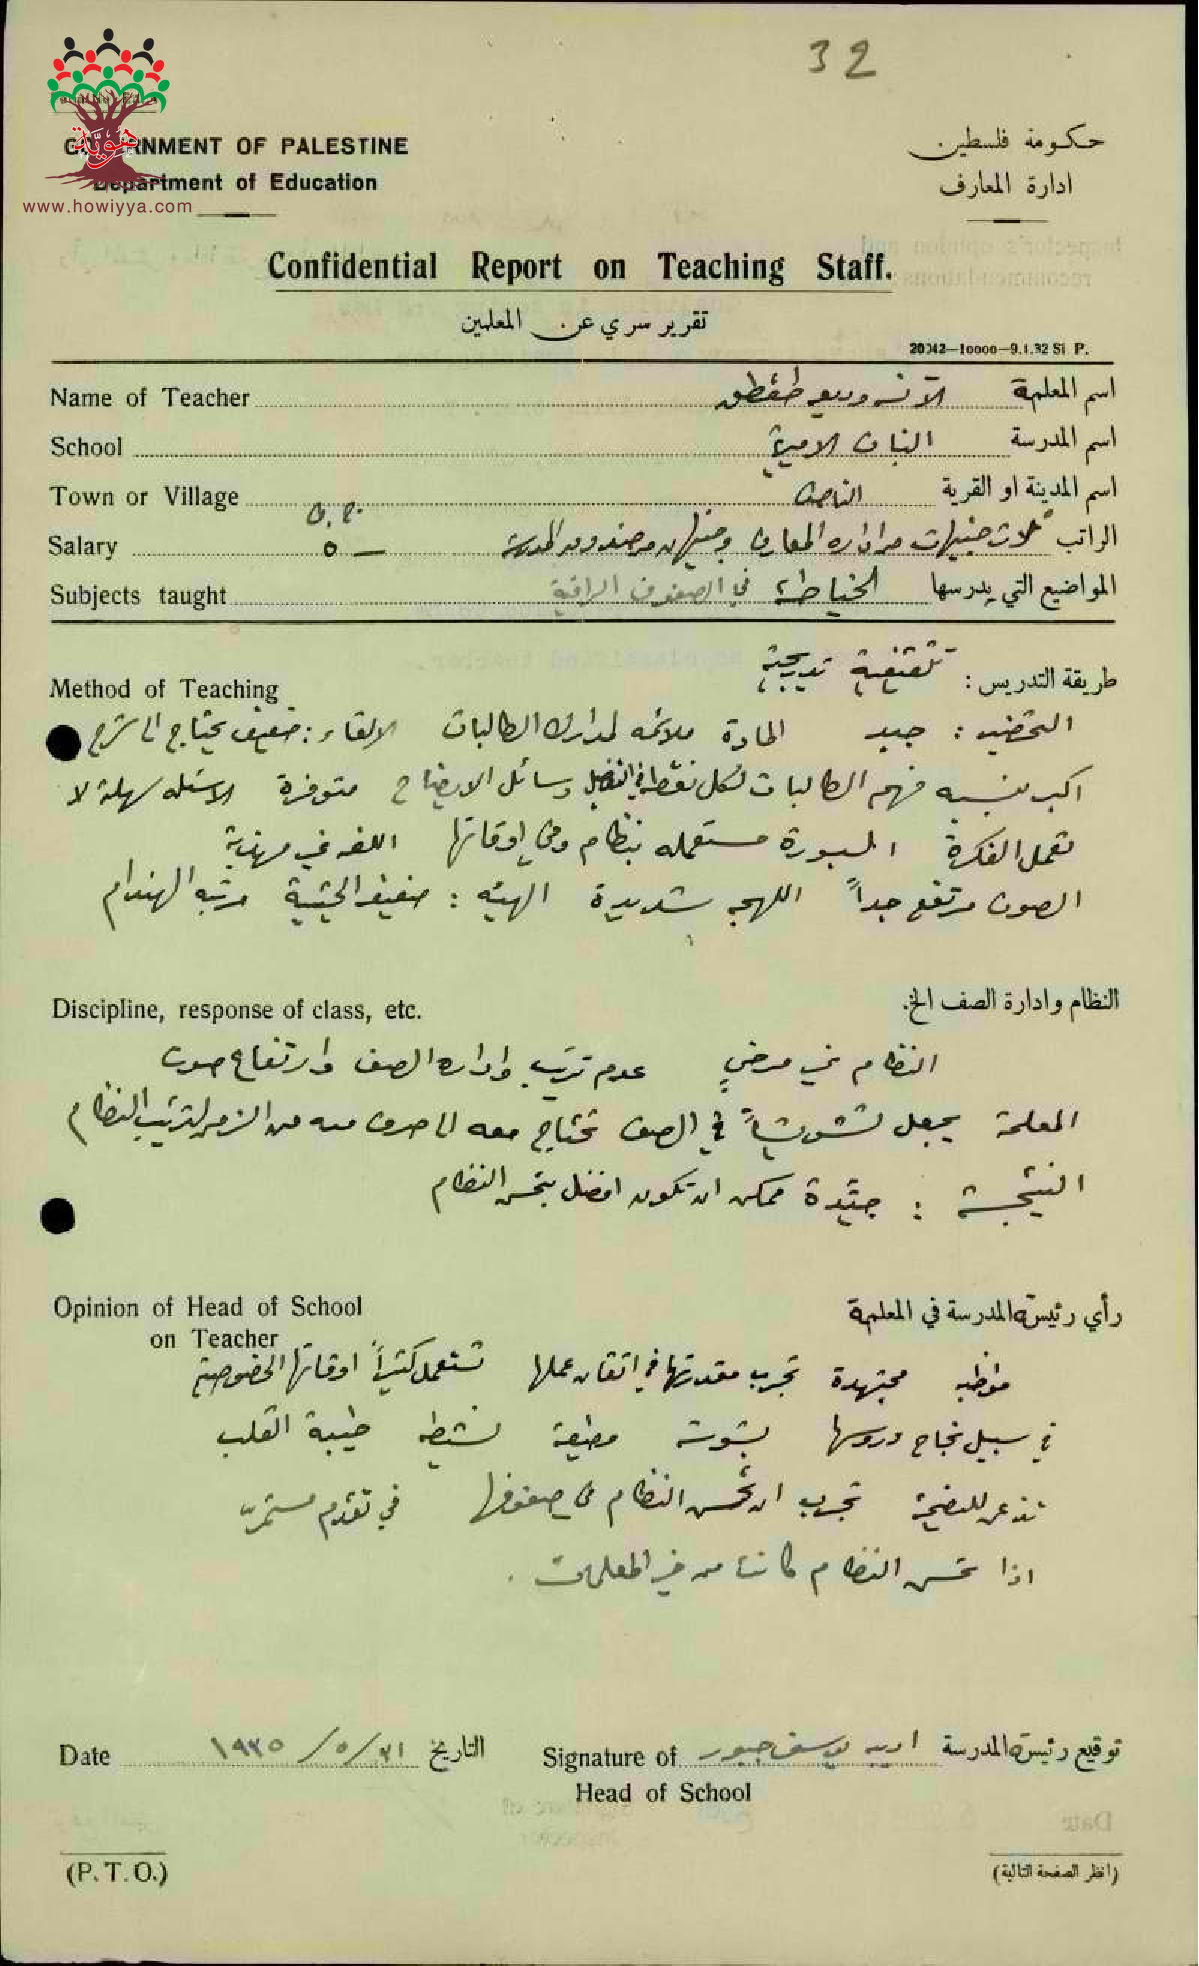 32
هوية
www.howiyya.com
GOVERNMENT OF PALESTINE
Department of Education
حكومة فلسطين
ادارة المعارف
Confidential Report on Teaching Staff.
تقرير سري عن المعلمين
20042—10000—9.1.32 St P.
Name of Teacher الآنسه وديعه طقطق اسم المعلمة
School البنات الاميرية اسم المدرسة
Town or Village الناصرة اسم المدينة او القرية
Salary ٥ — ثلاث جنيهات من اداره المعارف وجنيهان من صندوق المدرسة الراتب
Subjects taught الخياطة في الصفوف الراقية المواضيع التي يدرسها
Method of Teaching
طريقة التدريس : تدريجية
التحضير : جيد المادة ملائمه لمدارك الطالبات الالقاء : ضعيف يحتاج الى شرح
اكبر فهم الطالبات لكل نقطة وسائل الايضاح متوفرة الاسئله سهلة لا
تعمل الفكرة السبورة مستعمله بنظام وفي اوقاتها اللغه غير مهذبة
الصوت مرتفع جداً اللهجه شديدة الهيئه : ضعيفة مرتبه الهندام
Discipline, response of class, etc.
النظام وادارة الصف الخ.
النظام غير مرضٍ عدم ترتيب واداره الصف وارتفاع صوت
المعلمة يجعل تشويشاً في الصف تحتاج معه الى صرف مده من الزمن لترتيب النظام
النتيجة : جيّدة ممكن ان تكون افضل بتحسن النظام
Opinion of Head of School
on Teacher
رأي رئيسة المدرسة في المعلمة
مواظبه مجتهدة تجرب مقدرتها في اتقان عملها تستعمل كثيراً اوقاتها الخصوصية
في سبيل نجاح دروسها بشوشة مطيعة نشيطه طيبة القلب
تذعن للنصيحة تجرب ان تحسن النظام في صفوفها في تقدم مستمر
اذا تحسن النظام كانت من خير المعلمات .
Date ٣١ / ٥ / ١٩٣٥ التاريخ
Signature of اديبه يوسف جبور توقيع رئيسة المدرسة
Head of School
(P.T.O.)
(انظر الصفحة التالية)